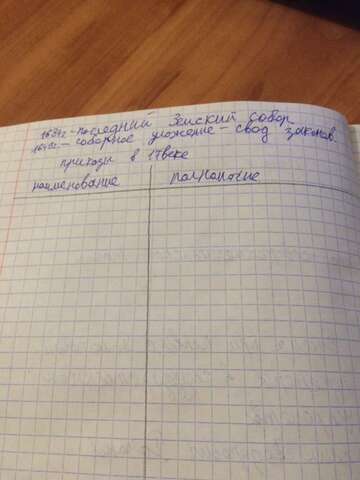 1684г - последний Земский собор
1649г - соборное уложение - свод законов
приказы в 17 веке
наименование полномочие